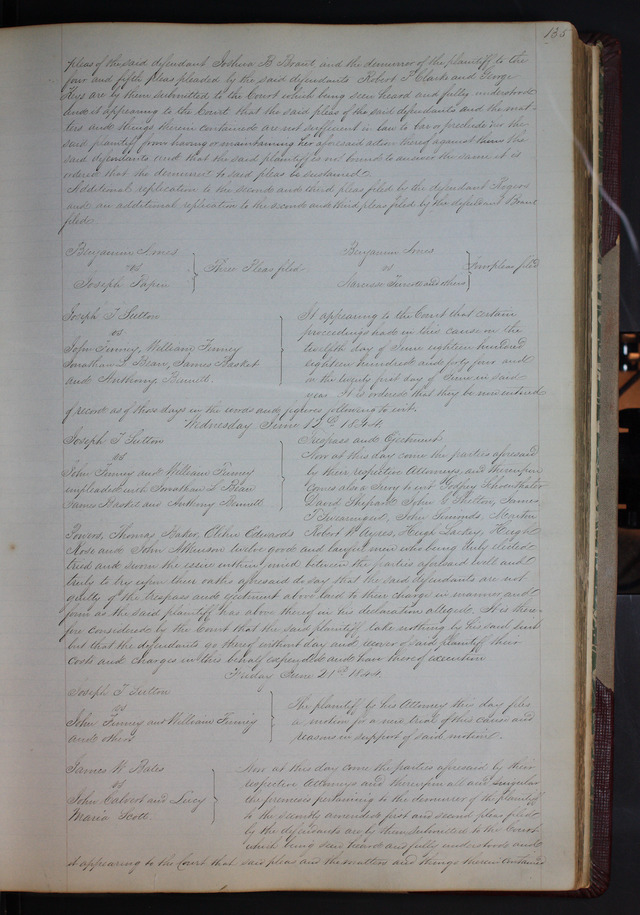 135
pleas of the said defendant Joshua B Brant, and the demurrer of the plaintiff to the
four and fifth pleas pleaded by the said defendants Robert P Clark and George
Keys are by them submitted to the Court which being seen heard and fully understood
and it appearing to the Court that the said pleas of the said defendants and the mat-
ters and things therein contained are not sufficient in law to bar or preclude the
said plaintiff from having or maintaining her aforesaid action thereof against the
said defendants and that the said plaintiff is not bound to answer the same it is
ordered that the demurrer to said pleas be sustained.
Additional replication to the second and third pleas filed by the defendant
and an additional replication to the second and third pleas filed by the defendant Brant
filed.
Benjamin Jones
vs
Joseph Papin
Three Pleas filed
Benjamin Jones
vs
and others
Four pleas filed
Joseph T Sutton
vs
John Finney, William Finney
Jonathan L. Bean, James Basket
and Anthony Bennett
It appearing to the Court that certain
proceedings had in this cause on the
twelfth day of June eighteen hundred
eighteen hundred and forty four and
on the twenty first day of June in said
year. It is ordered that they be now entered
of record as of those days in the words and figures following to wit.
Wednesday June 12th 1844.
Joseph T Sutton
vs
John Finney and William Finney
impleaded with Jonathan L. Bean
James Basket and Anthony Bennett
Trespass and Ejectment
Now at this day come the parties aforesaid
by their respective Attorneys, and thereupon
comes also a Jury to wit Godfrey
David Shepard John C Shelton, James
T Swearingen, John Simonds, Martin
Powers, Thomas Baker, Elisha Edwards Robert W Ayres, Hugh Hugh
Rose and John Atkinson twelve good and lawful men who being duly elected
tried and sworn the issue within joined between the parties aforesaid well and
truly to try upon their oaths aforesaid do say that the said defendants are not
guilty of the trespass and ejectment above laid to their charge in manner and
form as the said plaintiff has above thereof in his declaration alleged. It is there-
fore considered by the Court that the said plaintiff take nothing by his said suit
but that the defendants go thereof without day and recover of said plaintiff their
costs and charges in this behalf expended and have thereof execution
Friday June 21st 1844.
Joseph T Sutton
vs
John Finney and William Finney
and others
The plaintiff by his Attorney this day files
a motion for a new trial of this cause and
reasons in support of said motion.
James W Bates
vs
John Calvert and Lucy
Maria Scott.
Now at this day come the parties aforesaid by their
respective Attorneys and thereupon all and singular
the premises pertaining to the demurrer of the plaintiff
to the secondly amended first and second pleas filed
by the defendants are by them submitted to the Court
which being seen heard and fully understood and
it appearing to the Court that said pleas and the matters and things therein contained